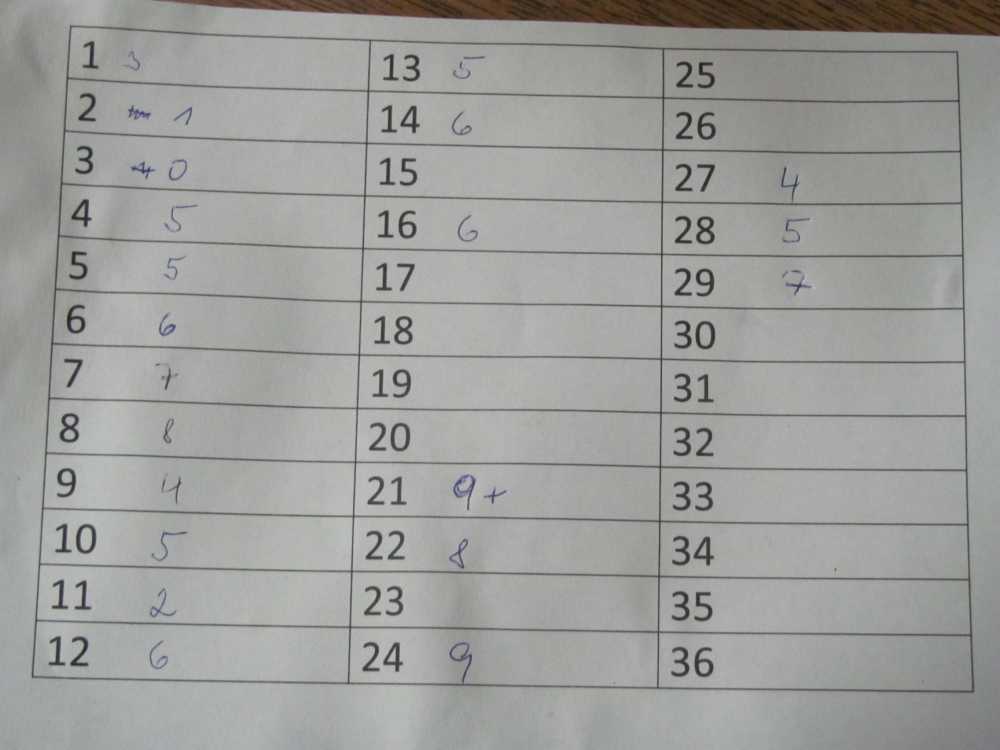 1 3
2 1
3 0
4 5
5 5
6 6
7 7
8 8
9 4
10 5
11 2
12 6
13 5
14 6
15
16 6
17
18
19
20
21 9+
22 8
23
24 9
25
26
27 4
28 5
29 7
30
31
32
33
34
35
36